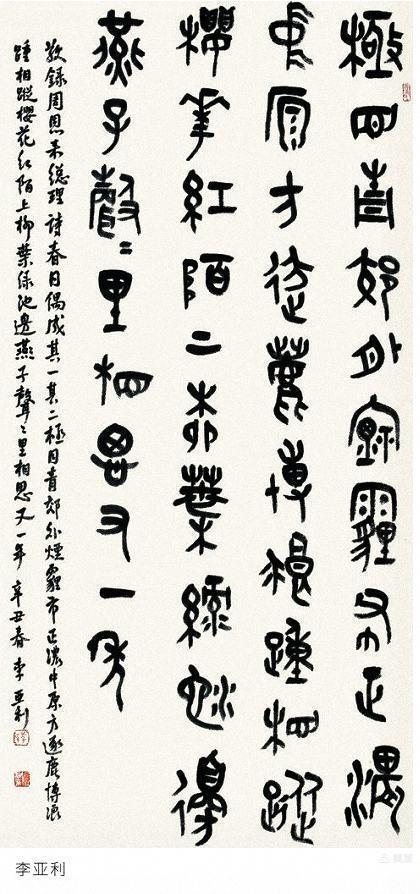 極目青郊外煙霾布正濃
中原方逐鹿博浪踵相蹤
櫻花紅陌上柳葉綠池邊
燕子聲〻里相思又一年
敬録周恩来總理詩春日偶成其一其二極目青郊外煙霾布正濃中原方逐鹿博浪
踵相蹤櫻花红陌上柳葉绿池邊燕子聲〻里相思又一年 辛丑春 李亚利
李亚利